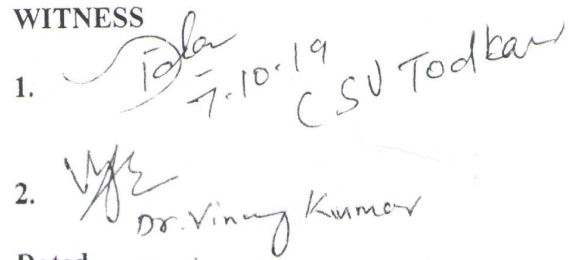 WITNESS
1. 7.10.19
CSV Todkar
2.
Dr. Vinay Kumar
Dated